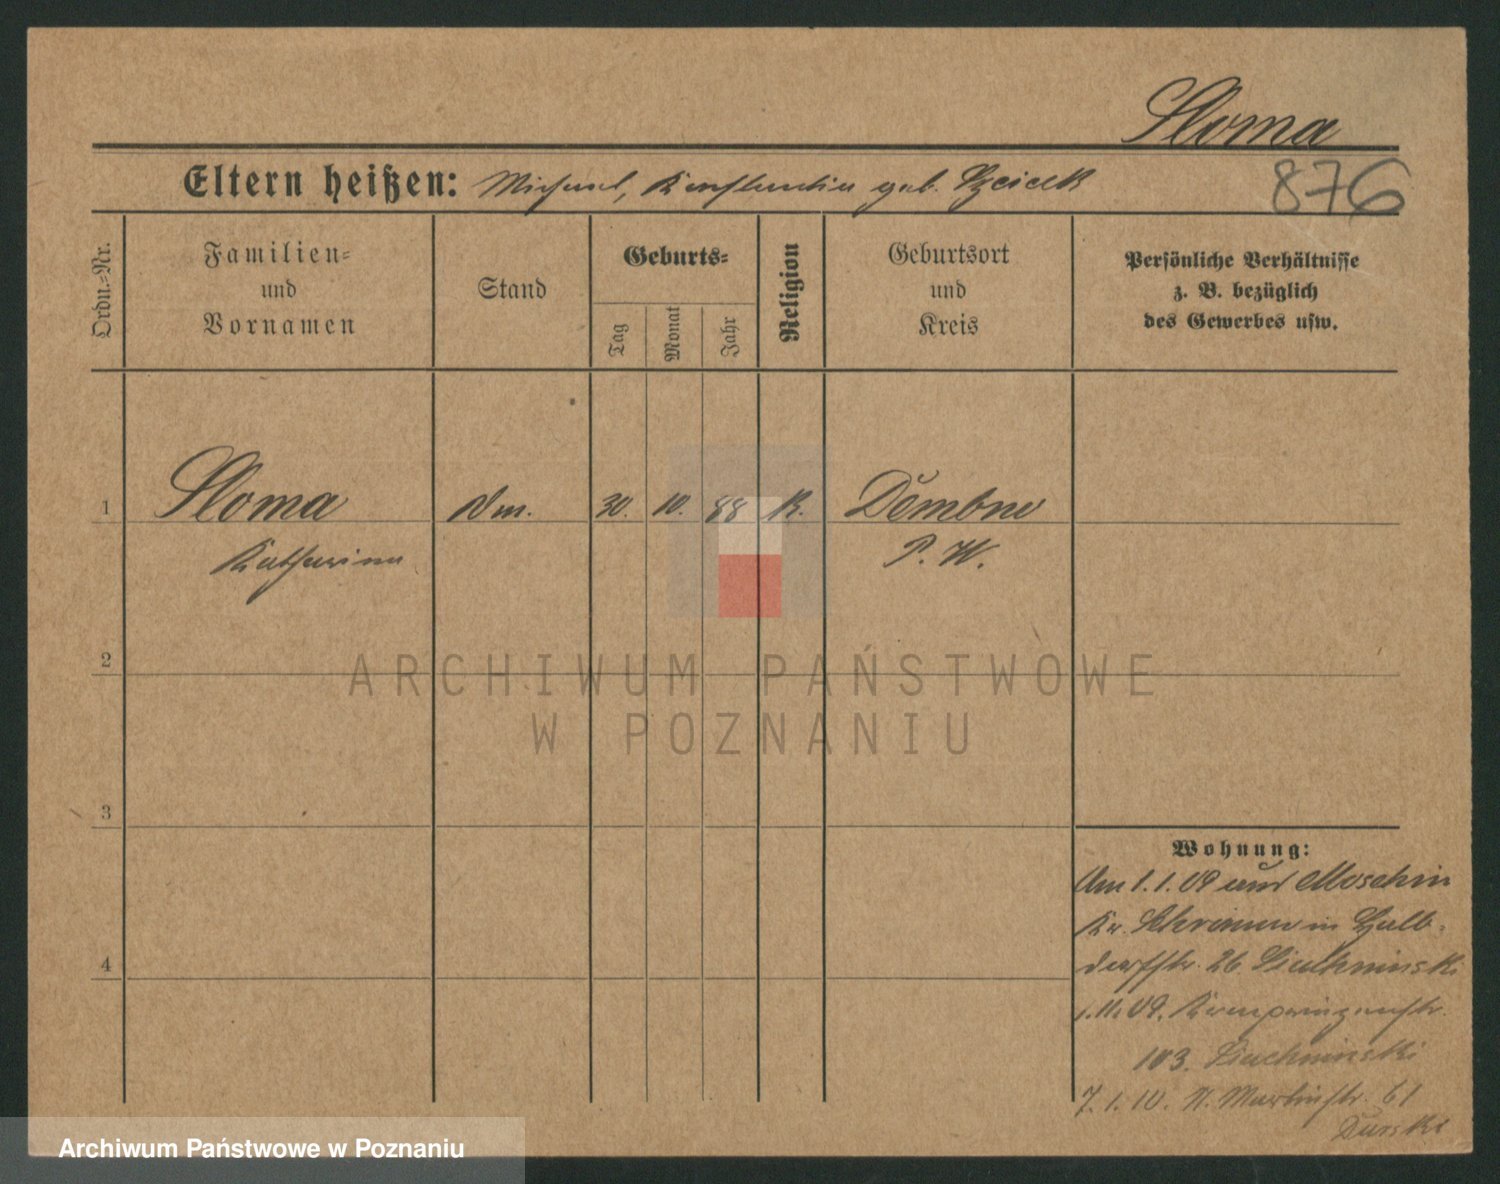 Sloma
Eltern heißen: Michael, Konstantia geb.
876
Ordn.=Nr.
Familien=
und
Vornamen
Stand
Geburts=
Tag
Monat
Jahr
Religion
Geburtsort
und
Kreis
Persönliche Verhältnisse
z. B. bezüglich
des Gewerbes usw.
1
Sloma
Dm.
30.
10.
88
K.
Dembno
Katharina
P. W.
2
ARCHIWUM PAŃSTWOWE
W POZNANIU
3
Wohnung:
Am 1.1.09 aus Moschin
Kr. Schrimm in
dorfstr. 26
1.11.09. Kronprinzenstr.
103.
4
7.1.10. St. Martinstr. 61
Archiwum Państwowe w Poznaniu